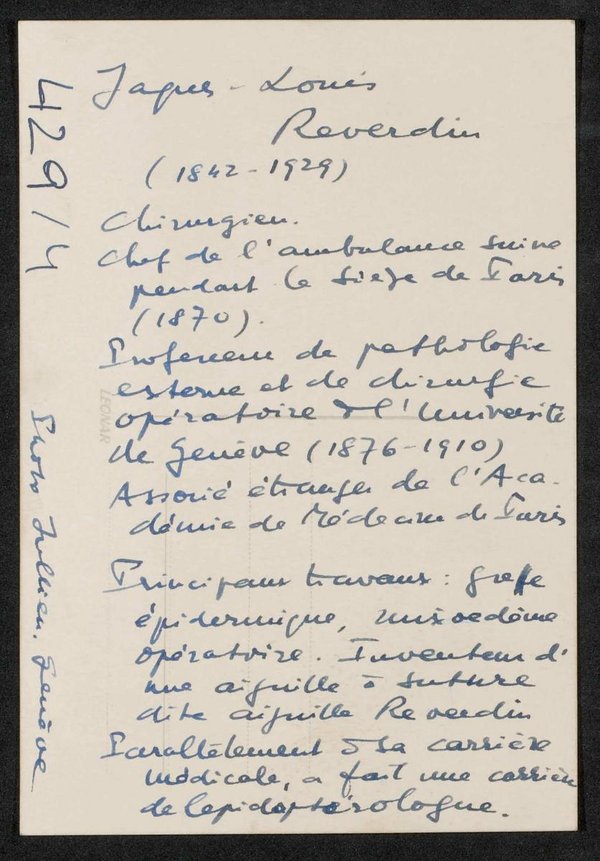 Jaques-Louis
Reverdin
(1842-1929)
Chirurgien.
Chef de l'ambulance suisse
pendant le siège de Paris
(1870).
Professeur de pathologie
externe et de chirurgie
opératoire à l'Université
de Genève (1876-1910)
Associé étranger de l'Aca-
démie de Médecine de Paris
Principaux travaux : greffe
épidermique, mixoedème
opératoire. Inventeur d'
une aiguille à suture
dite aiguille Reverdin
Parallèlement à sa carrière
médicale, a fait une carrière
de lépidoptérologue.
429/4
Photo Jullien. Genève
LEONAR